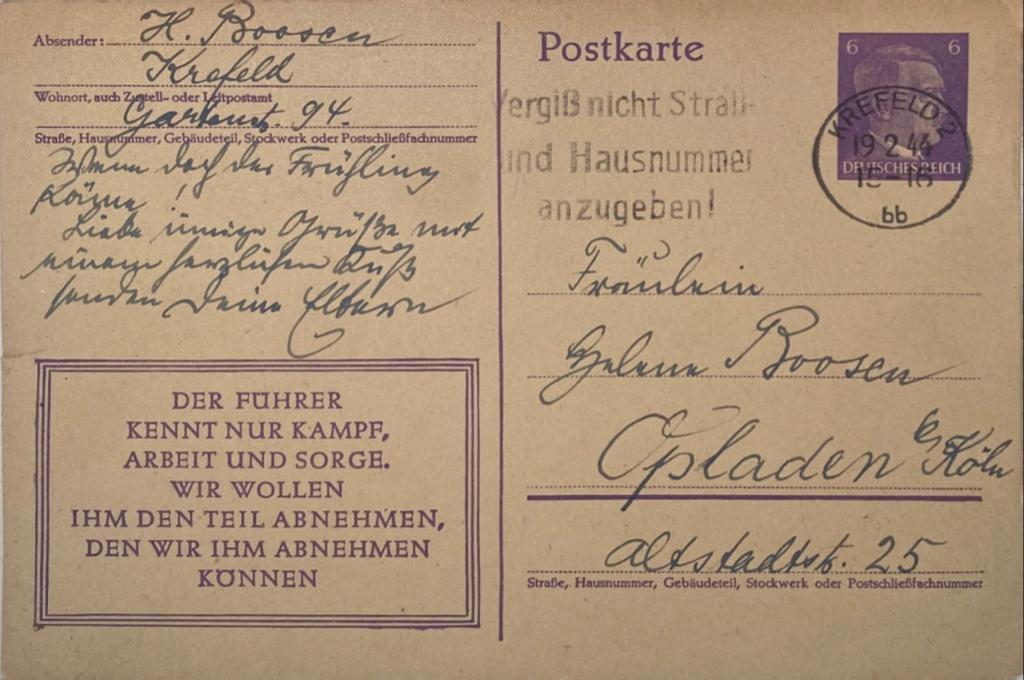 Absender: H. Boosen
Krefeld
Wohnort, auch Zustell- oder Leitpostamt
Gartenst. 94.
Straße, Hausnummer, Gebäudeteil, Stockwerk oder Postschließfachnummer
Wenn doch der Frühling
käme!
Liebe innige Grüße mit
einem herzlichen Kuß
senden Deine Eltern
DER FÜHRER
KENNT NUR KAMPF,
ARBEIT UND SORGE.
WIR WOLLEN
IHM DEN TEIL ABNEHMEN,
DEN WIR IHM ABNEHMEN
KÖNNEN
Postkarte
Vergiß nicht Straß-
und Hausnummer
anzugeben!
6 6
DEUTSCHES REICH
KREFELD 2
19 2 44
15-16
bb
Fräulein
Helene Boosen
Opladen b/ Köln
Altstadtst. 25
Straße, Hausnummer, Gebäudeteil, Stockwerk oder Postschließfachnummer